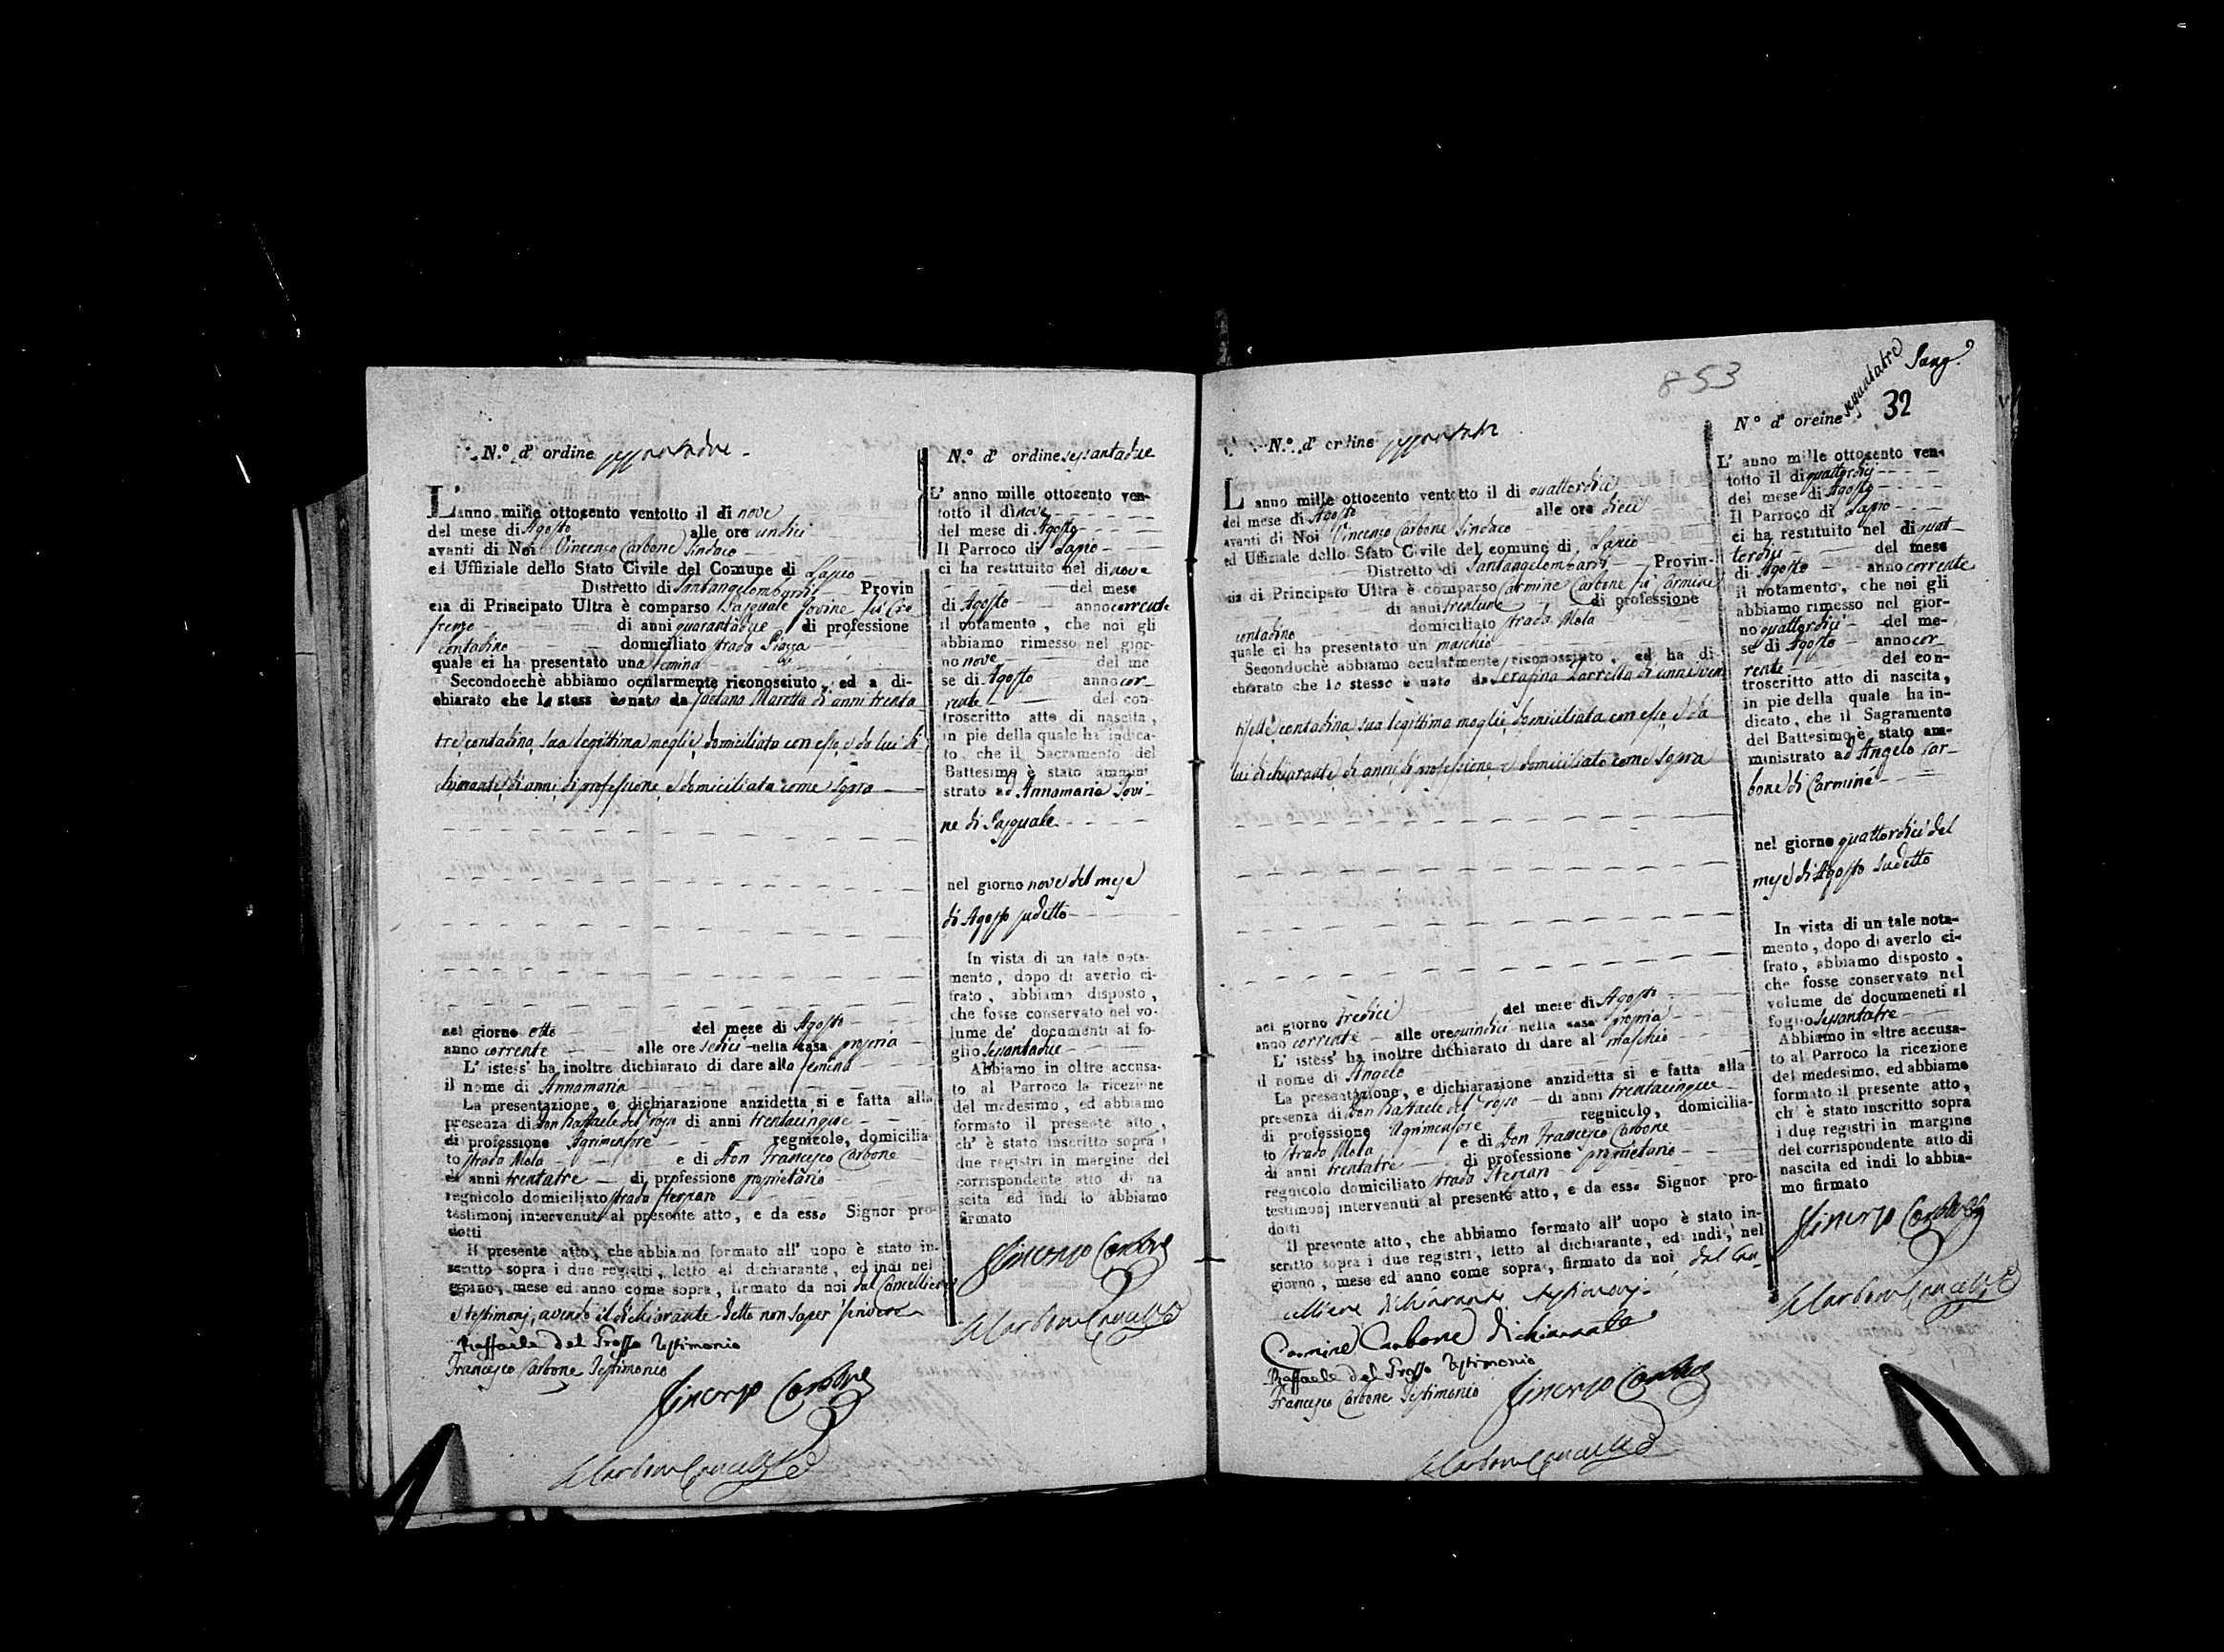 N.° d' ordine sessantadue
L' anno mille ottocento ventotto il di nove
del mese di Agosto alle ore undici
avanti di Noi Vincenzo Carbone Sindaco
ed Uffiziale dello Stato Civile del Comune di Lapio
Distretto di Santangelombardi Provin
cia di Principato Ultra è comparso Pasquale Iovine fu
di anni quarantadue di professione
contadino domiciliato strada Piazza
quale ci ha presentato una femina
Secondocchè abbiamo ocularmente riconosciuto, ed a di-
chiarato che lo stess è nato da Gaetana Marotta di anni trenta
tre contadina sua legittima moglie domiciliata con esso, e da lui di
chiarante di anni, di professione, e domiciliata come sopra
nel giorno otto del mese di Agosto
anno corrente alle ore sedici nella casa propria
L' istess' ha inoltre dichiarato di dare alla femina
il nome di Annamaria
La presentazione, e dichiarazione anzidetta si e fatta alla
presenza di Don Raffaele del Grosso di anni trentacinque
di professione Agrimensore regnicolo, domicilia-
to strada Mola e di Don Francesco Carbone
di anni trentatre di professione proprietario
regnicolo domiciliato strada
testimonj intervenuti al presente atto, e da esso Signor pro-
dotti
Il presente atto, che abbiamo formato all' uopo è stato in-
scritto sopra i due registri, letto al dichiarante, ed indi nel
giorno, mese ed anno come sopra, firmato da noi dal Cancelliere
e testimonj, avendo il dichiarante detto non saper scrivere
Raffaele Del Grosso Testimonio
Francesco Carbone Testimonio
Vincenzo Carbone
N.° d' ordine sessantadue
L' anno mille ottocento ven-
totto il di nove
del mese di Agosto
Il Parroco di Lapio
ci ha restituito nel di nove
del mese
di Agosto anno corrente
il notamento, che noi gli
abbiamo rimesso nel gior-
no nove del me
se di Agosto anno cor-
rente del con-
troscritto atto di nascita,
in pie della quale ha indica-
to, che il Sacramento del
Battesimo è stato ammini
strato ad Annamaria Iovi-
ne di Pasquale
nel giorno nove del mese
di Agosto sudetto
In vista di un tale nota-
mento, dopo di averlo ci-
frato, abbiamo disposto,
che fosse conservato nel vo-
lume de' documenti al fo-
glio sessantadue
Abbiamo in oltre accusa-
to al Parroco la ricezione
del medesimo, ed abbiamo
formato il presente atto,
ch' è stato inscritto sopra i
due registri in margine del
corrispondente atto di na
scita ed indi lo abbiamo
firmato
Vincenzo Carbone
853
sessantatre
32
N.° d' ordine
L' anno mille ottocento ventotto il di quattordici
del mese di Agosto alle ore dieci
avanti di Noi Vincenzo Carbone Sindaco
ed Uffiziale dello Stato Civile del comune di Lapio
Distretto di Santangelombardi Provin-
cia di Principato Ultra è comparso Carmine Carbone fu Carmine
di anni trentuno di professione
contadino domiciliato strada Mola
quale ci ha presentato un maschio
Secondochè abbiamo ocularmente riconosciuto, ed ha di-
chiarato che lo stesso è nato da Serafina di anni ven
tisette contadina sua legittima moglie domiciliata con esso, e da
lui dichiarante di anni, di professione, e domiciliato come sopra
nel giorno tredici del mese di Agosto
anno corrente alle ore quindici nella casa propria
L' istess' ha inoltre dichiarato di dare al maschio
il nome di Angelo
La presentazione, e dichiarazione anzidetta si e fatta alla
presenza di Don Raffaele del Grosso di anni trentacinque
di professione Agrimensore regnicolo, domicilia-
to strada Mola e di Don Francesco Carbone
di anni trentatre di professione proprietario
regnicolo domiciliato strada
testimonj intervenuti al presente atto, e da esso Signor pro-
dotti
Il presente atto, che abbiamo formato all' uopo è stato in-
scritto sopra i due registri, letto al dichiarante, ed indi, nel
giorno, mese ed anno come sopra, firmato da noi, dal Can-
celliere dichiarante e testimonj
Carmine Carbone dichiarante
Raffaele Del Grosso Testimonio
Francesco Carbone Testimonio
Vincenzo Carbone
N.° d' oreine
L' anno mille ottocento ven-
totto il di quattordici
del mese di Agosto
Il Parroco di Lapio
ci ha restituito nel di quat-
tordici del mese
di Agosto anno corrente
il notamento, che noi gli
abbiamo rimesso nel gior-
no quattordici del me-
se di Agosto anno cor-
rente del con-
troscritto atto di nascita,
in pie della quale ha in-
dicato, che il Sagramento
del Battesimo è stato am-
ministrato ad Angelo Car-
bone di Carmine
nel giorno quattordici del
mese di Agosto sudetto
In vista di un tale nota-
mento, dopo di averlo ci-
frato, abbiamo disposto,
che fosse conservato nel
volume de' documeneti al
foglio sessantatre
Abbiamo in oltre accusa-
to al Parroco la ricezione
del medesimo, ed abbiamo
formato il presente atto,
ch' è stato inscritto sopra
i due registri in margine
del corrispondente atto di
nascita ed indi lo abbia-
mo firmato
Vincenzo Carbone